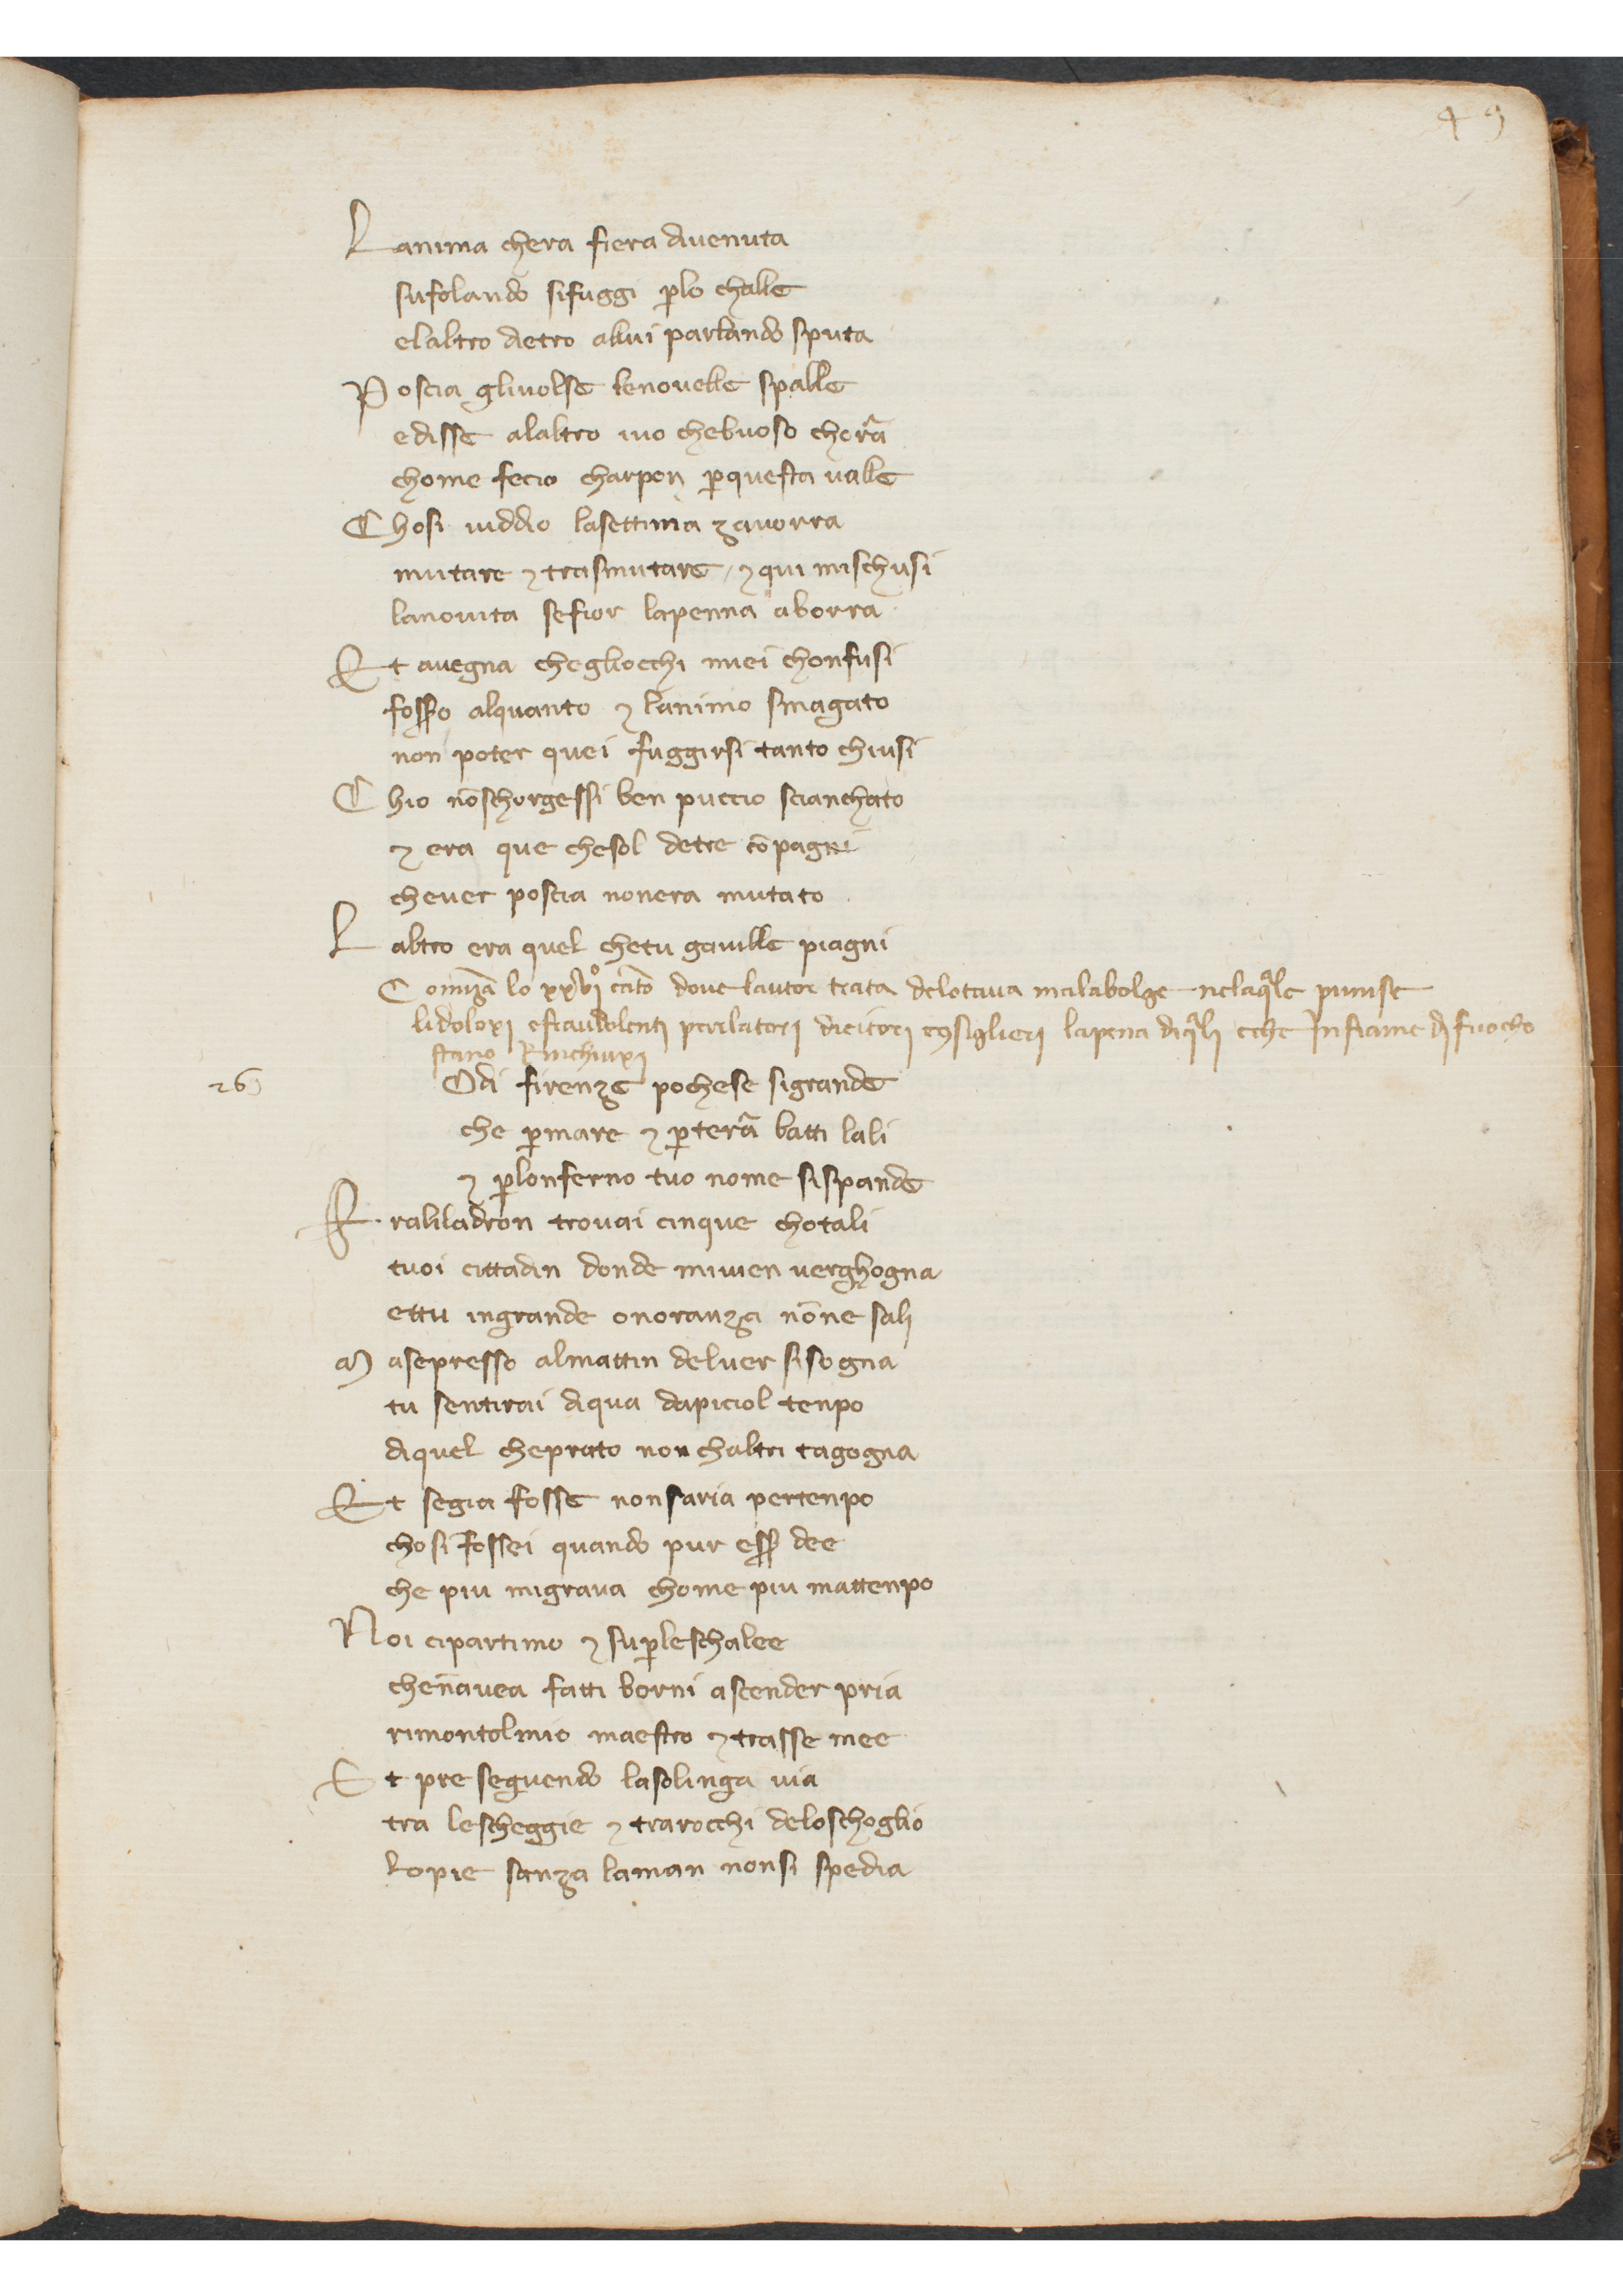 49
Lanima chera fiera divenuta
sufolando sifuggi ꝑlo challe
elaltro dietro allui parlando sputa
Poscia glivolse lenovelle spalle
edisse alaltro ivo chebuoso chorã
chome fecio charpon ꝑquesta valle
Chosi viddio lasettima zavorra
mutare ⁊ trasmutare / ⁊ qui mischusi
lanovita sefior lapenna aborra
Et avegna chegliocchi miei chonfusi
fosẜo alquanto ⁊ lanimo smagato
non poter quei fuggirsi tanto chiusi
Chio nõschorgessi ben puccio scianchato
⁊ era que chesol detre cõpagni
chever poscia nonera mutato
Laltro era quel chetu gaville piagni
Comĩza lo xxvjº cãto dove lautor trata delotava malabolge nelaq̃le punise
lidoloxi efraudolenti dicitori cõsiglieri lapena diq̃li eche Infiame dj fuocho
stano Rinchiuxi
26
Odi firenze pochese sigrande
che ꝑmare ⁊ ꝑterã batti lali
⁊ ꝑlonferno tuo nome sispande
Fraliladron trovai cinque chotali
tuoi cittadin donde mivien verghogna
ettu ingrande onoranza nõne salj
Masepresso almattin delver sisogna
tu sentirai diqua dapiciol tenpo
diquel cheprato non chaltri tagogna
Et segia fosse nonsaria pertenpo
chosi fossei quando pur esẜ dee
che piu migrava chome piu mattenpo
Noi cipartimo ⁊ suꝑleschalee
chen̄avea fatti borni ascender pria
rimontolmio maestro ⁊ trasse mee
Et pre seguendo lasolinga via
tra lescheggie ⁊ trarocchi deloschoglio
lopie sanza laman nonsi spedia